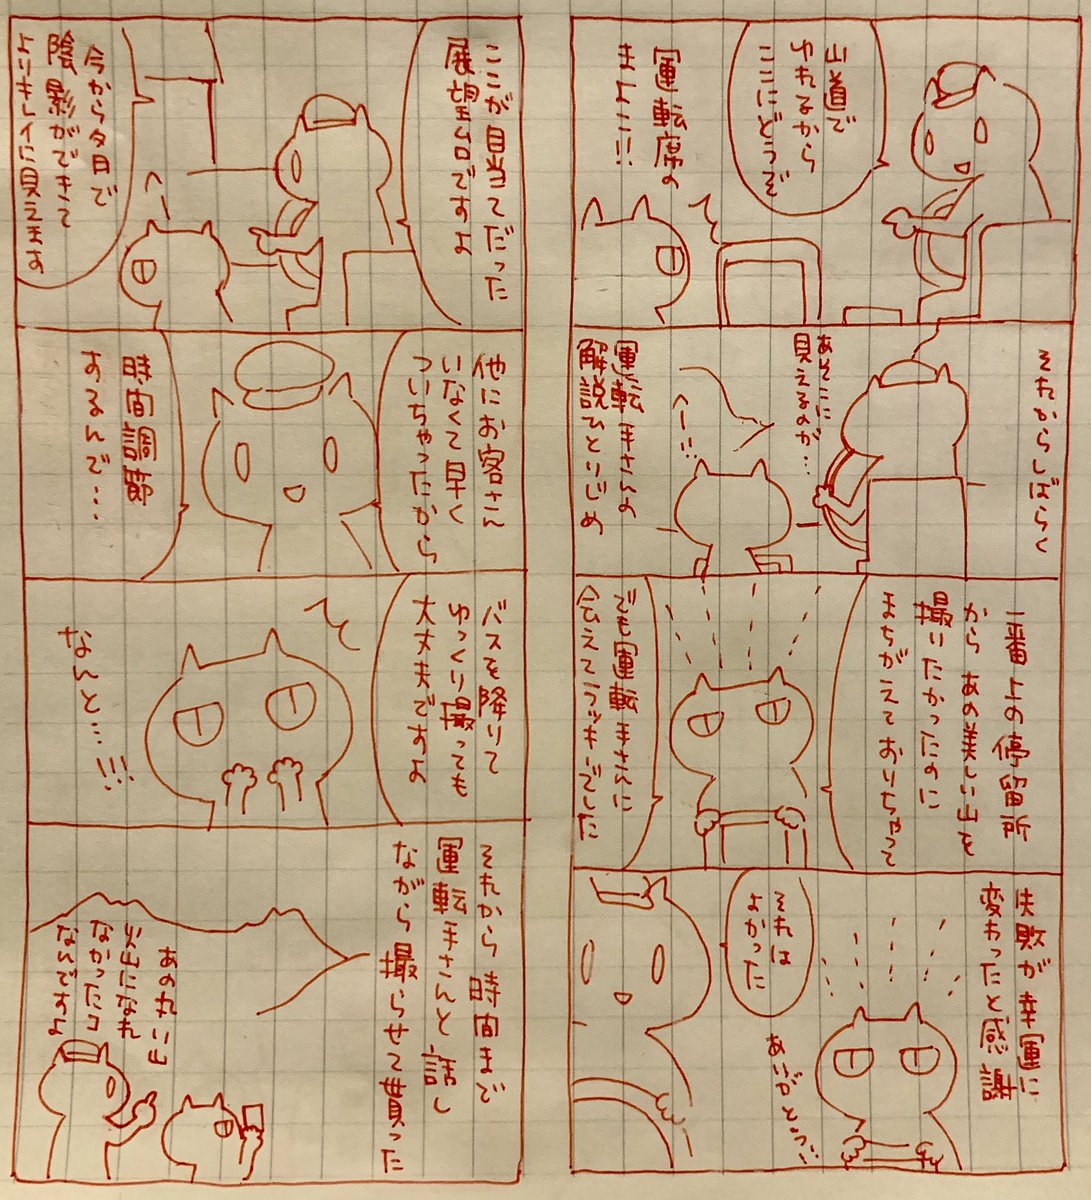 山道で
ゆれるから
ここにどうぞ
運転席の
まよこ!!
それからしばらく
あそこに
見えるのが…
へー!!
運転手さんの
解説ひとりじめ
一番上の停留所
から あの美しい山を
撮りたかったのに
まちがえておりちゃって
でも運転手さんに
会えてラッキーでした
失敗が幸運に
変わったと感謝
それは
よかった
ありがとう…
ここが目当てだった
展望台ですよ
今から夕日で
陰影ができて
よりキレイに見えます
他にお客さん
いなくて早く
ついちゃったから
時間調節
するんで…
バスを降りて
ゆっくり撮っても
大丈夫ですよ
なんと…!!!
それから時間まで
運転手さんと話し
ながら撮らせて貰った
あの丸い山
火山になれ
なかったコ
なんですよ